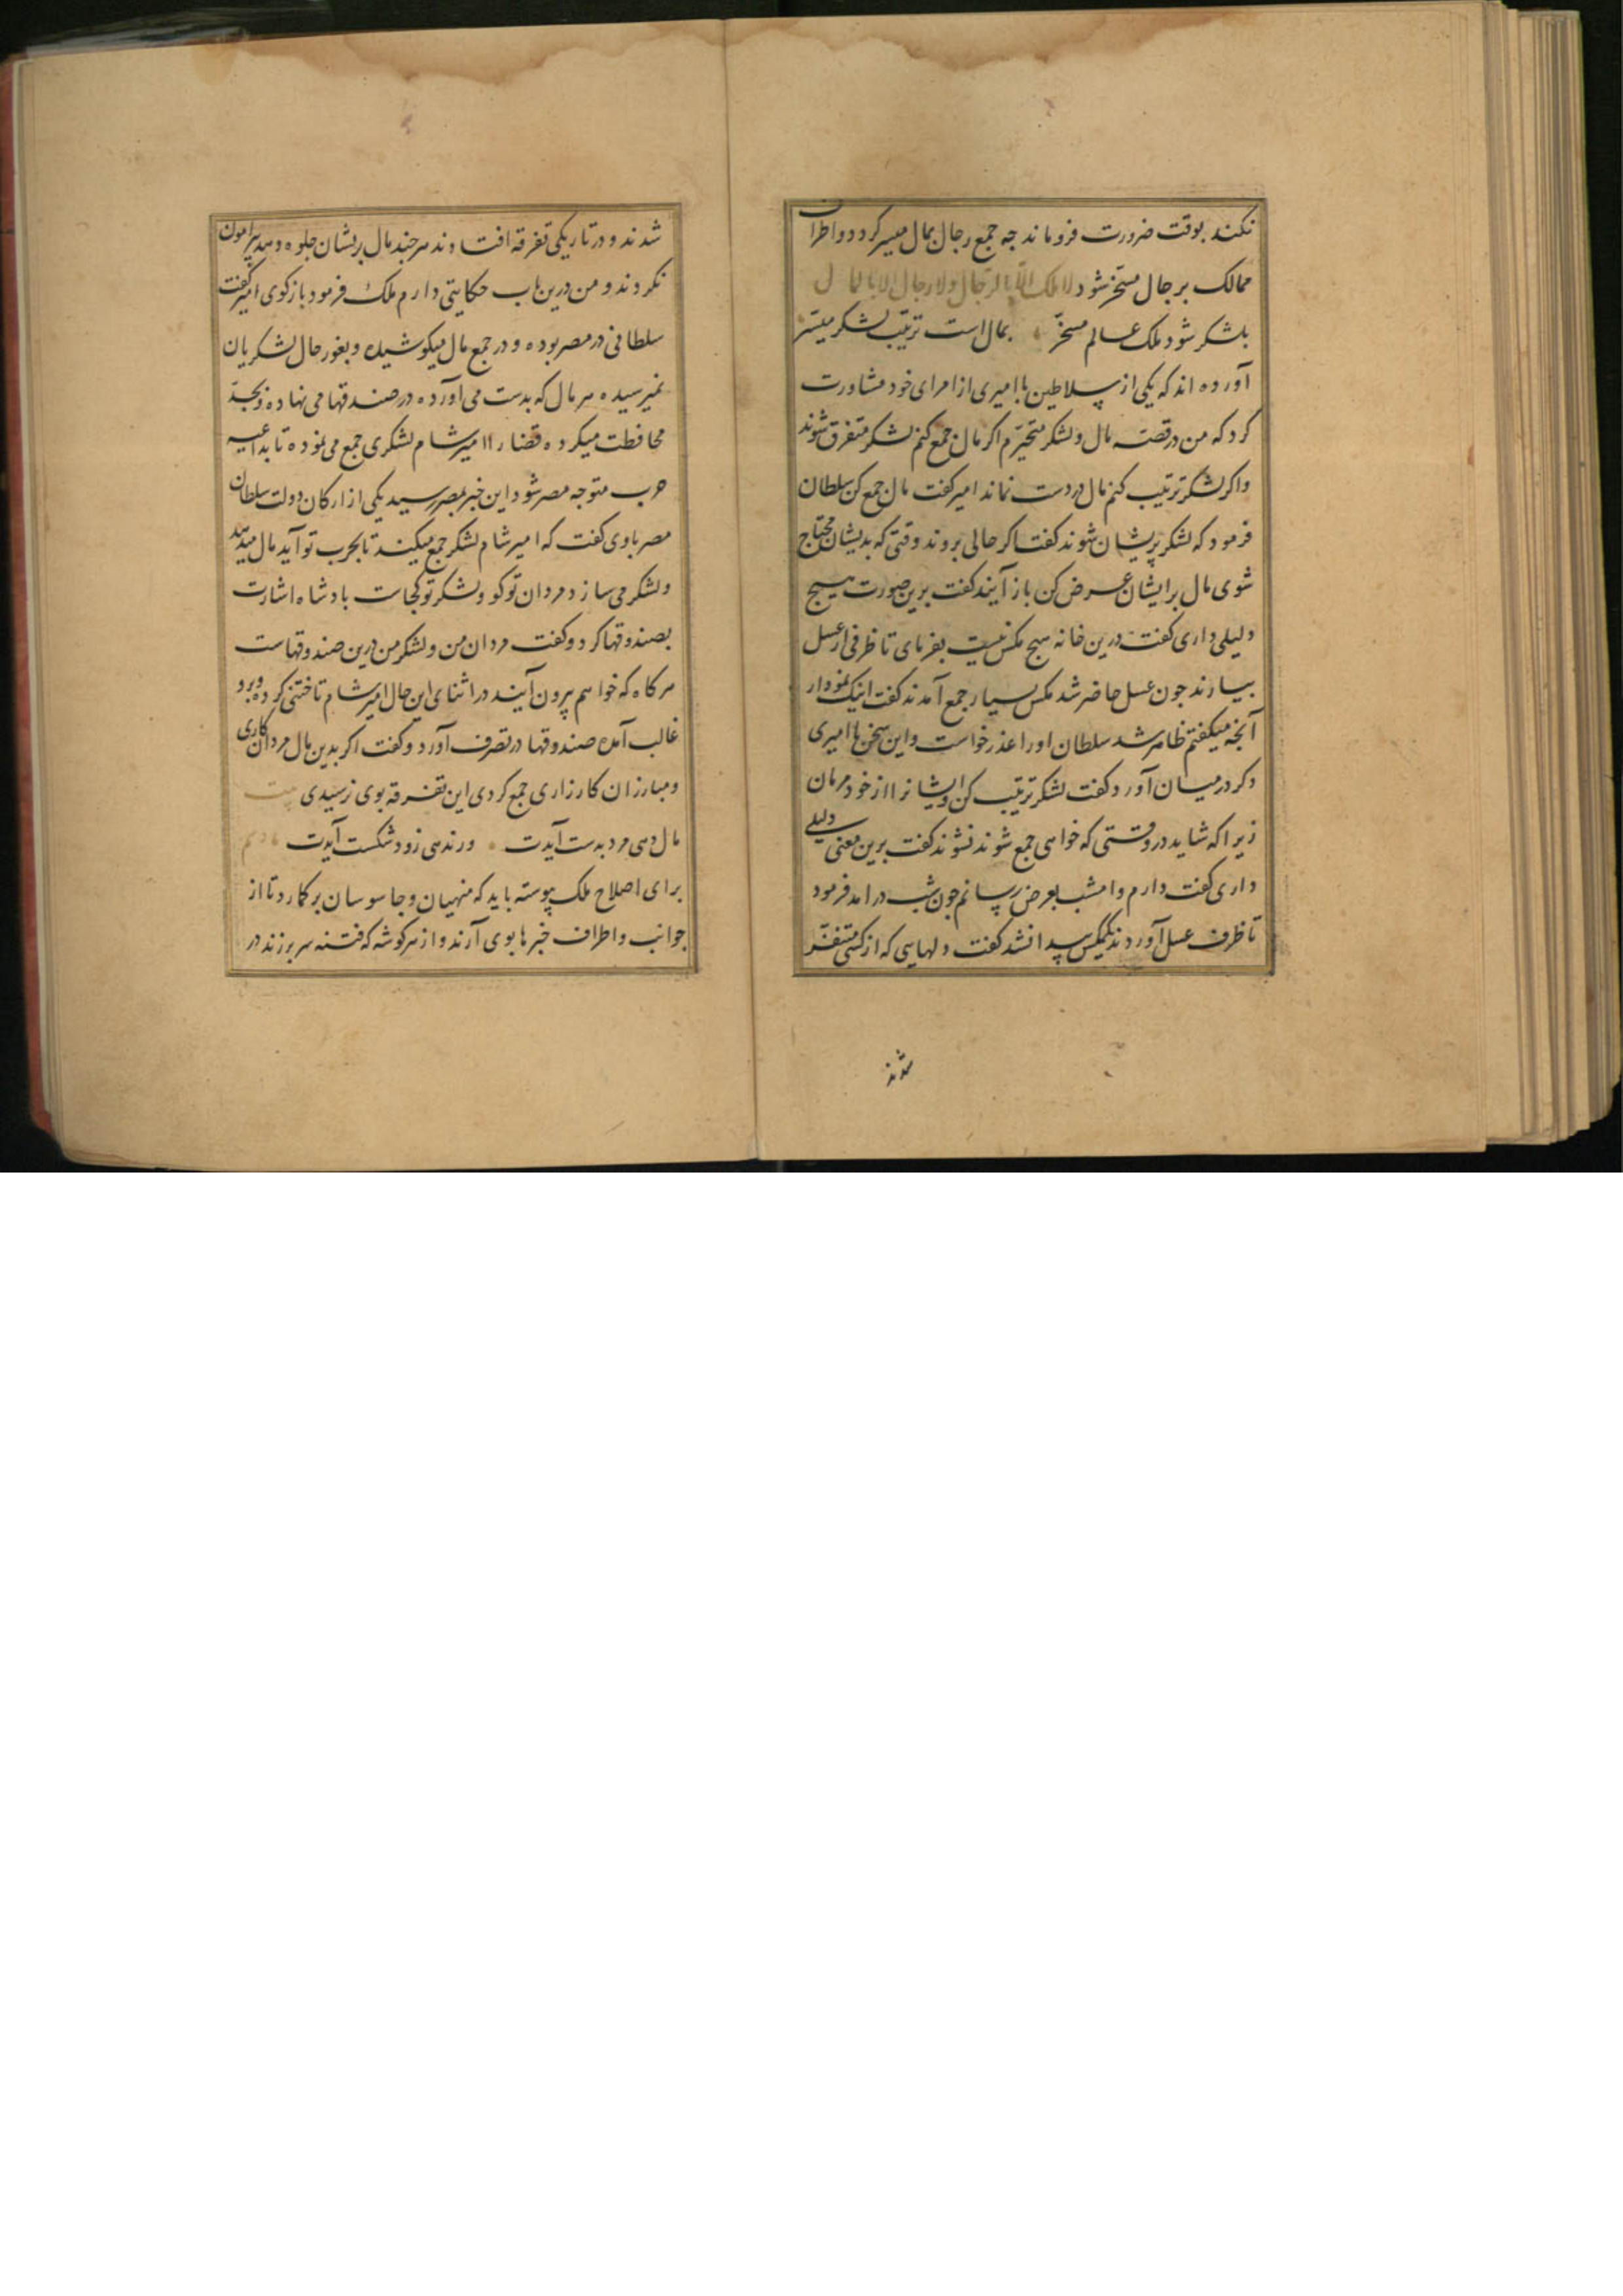 نکند بوقت ضرورت فروماند جه جمع رجال بمال میسر کردد و اطراف
ممالک برجال مسخر شود لا ملک الا بالرجال ولا رجال الا بالمال
بلشکر شود ملک عالم مسخر بمال است ترتیب لشکر میسر
آورده اند که یکی از سلاطین با امیری از امرای خود مشاورت
کرد که من در قصه مال و لشکر متحیرم اکر مال جمع کنم لشکر متفرق شوند
واکر لشکر ترتیب کنم مال در دست نماند امیر کفت مال جمع کن سلطان
فرمود که لشکر پریشان شوند کفت اکر حالی بروند وقتی که بدیشان محتاج
شوی مال برایشان عرض کن باز آیند کفت برین صورت هیچ
دلیلی داری کفت درین خانه هیج مکس نیست بفرمای تا ظرفی از عسل
بیارند جون عسل حاضر شد مکس بسیار جمع آمدند کفت اینک نمودار
آنجه میکفتم ظاهر شد سلطان اورا عذر خواست واین سخن با امیری
دکر درمیان آورد کفت لشکر ترتیب کن و ایشانرا از خود مرمان
زیرا که شاید در وقتی که خواهی جمع شوند نشوند کفت برین معنی دلیلی
داری کفت دارم وامشب بعرض رسانم جون شب درامد فرمود
تا ظرف عسل آوردند یک مکس پیدا نشد کفت دلهایی که از کسی متنفر
شدند
شدند و در تاریکی تفرقه افتادند هر جند مال بریشان جلوه دهید پیرامون
نکردند و من درین باب حکایتی دارم ملک فرمود بازکوی امیر کفت
سلطانی در مصر بوده و در جمع مال میکوشیده و بغور حال لشکریان
نمیرسیده هر مال که بدست می آورده در صندقها می نهاده و بجد
محافظت میکرده قضارا امیر شام لشکری جمع می نموده تا بداعیه
حرب متوجه مصر شود این خبر بمصر رسید یکی از ارکان دولت سلطان
مصر باوی کفت که امیر شام لشکر جمع میکند تا بحرب تو آید مال میدهد
ولشکر می سازد مردان تو کو و لشکر تو کجاست بادشاه اشارت
بصندوقها کرد و کفت مردان من و لشکر من درین صندوقهاست
هرکاه که خواهم بیرون آیند در اثنای این حال امیر شام تاختنی کرده و برو
غالب آمده صندوقها در تصرف آورد و کفت اکر بدین مال مردان کاری
ومبارزان کارزاری جمع کردی این تفرقه بوی نرسیدی بیت
مال دهی مرد بدست آیدت ورندهی زود شکست آیدت
برای اصلاح ملک پیوسته باید که منهیان و جاسوسان برکمارد تا از
جوانب و اطراف خبرها بوی آرند و از هر کوشه که فتنه سر برزند در